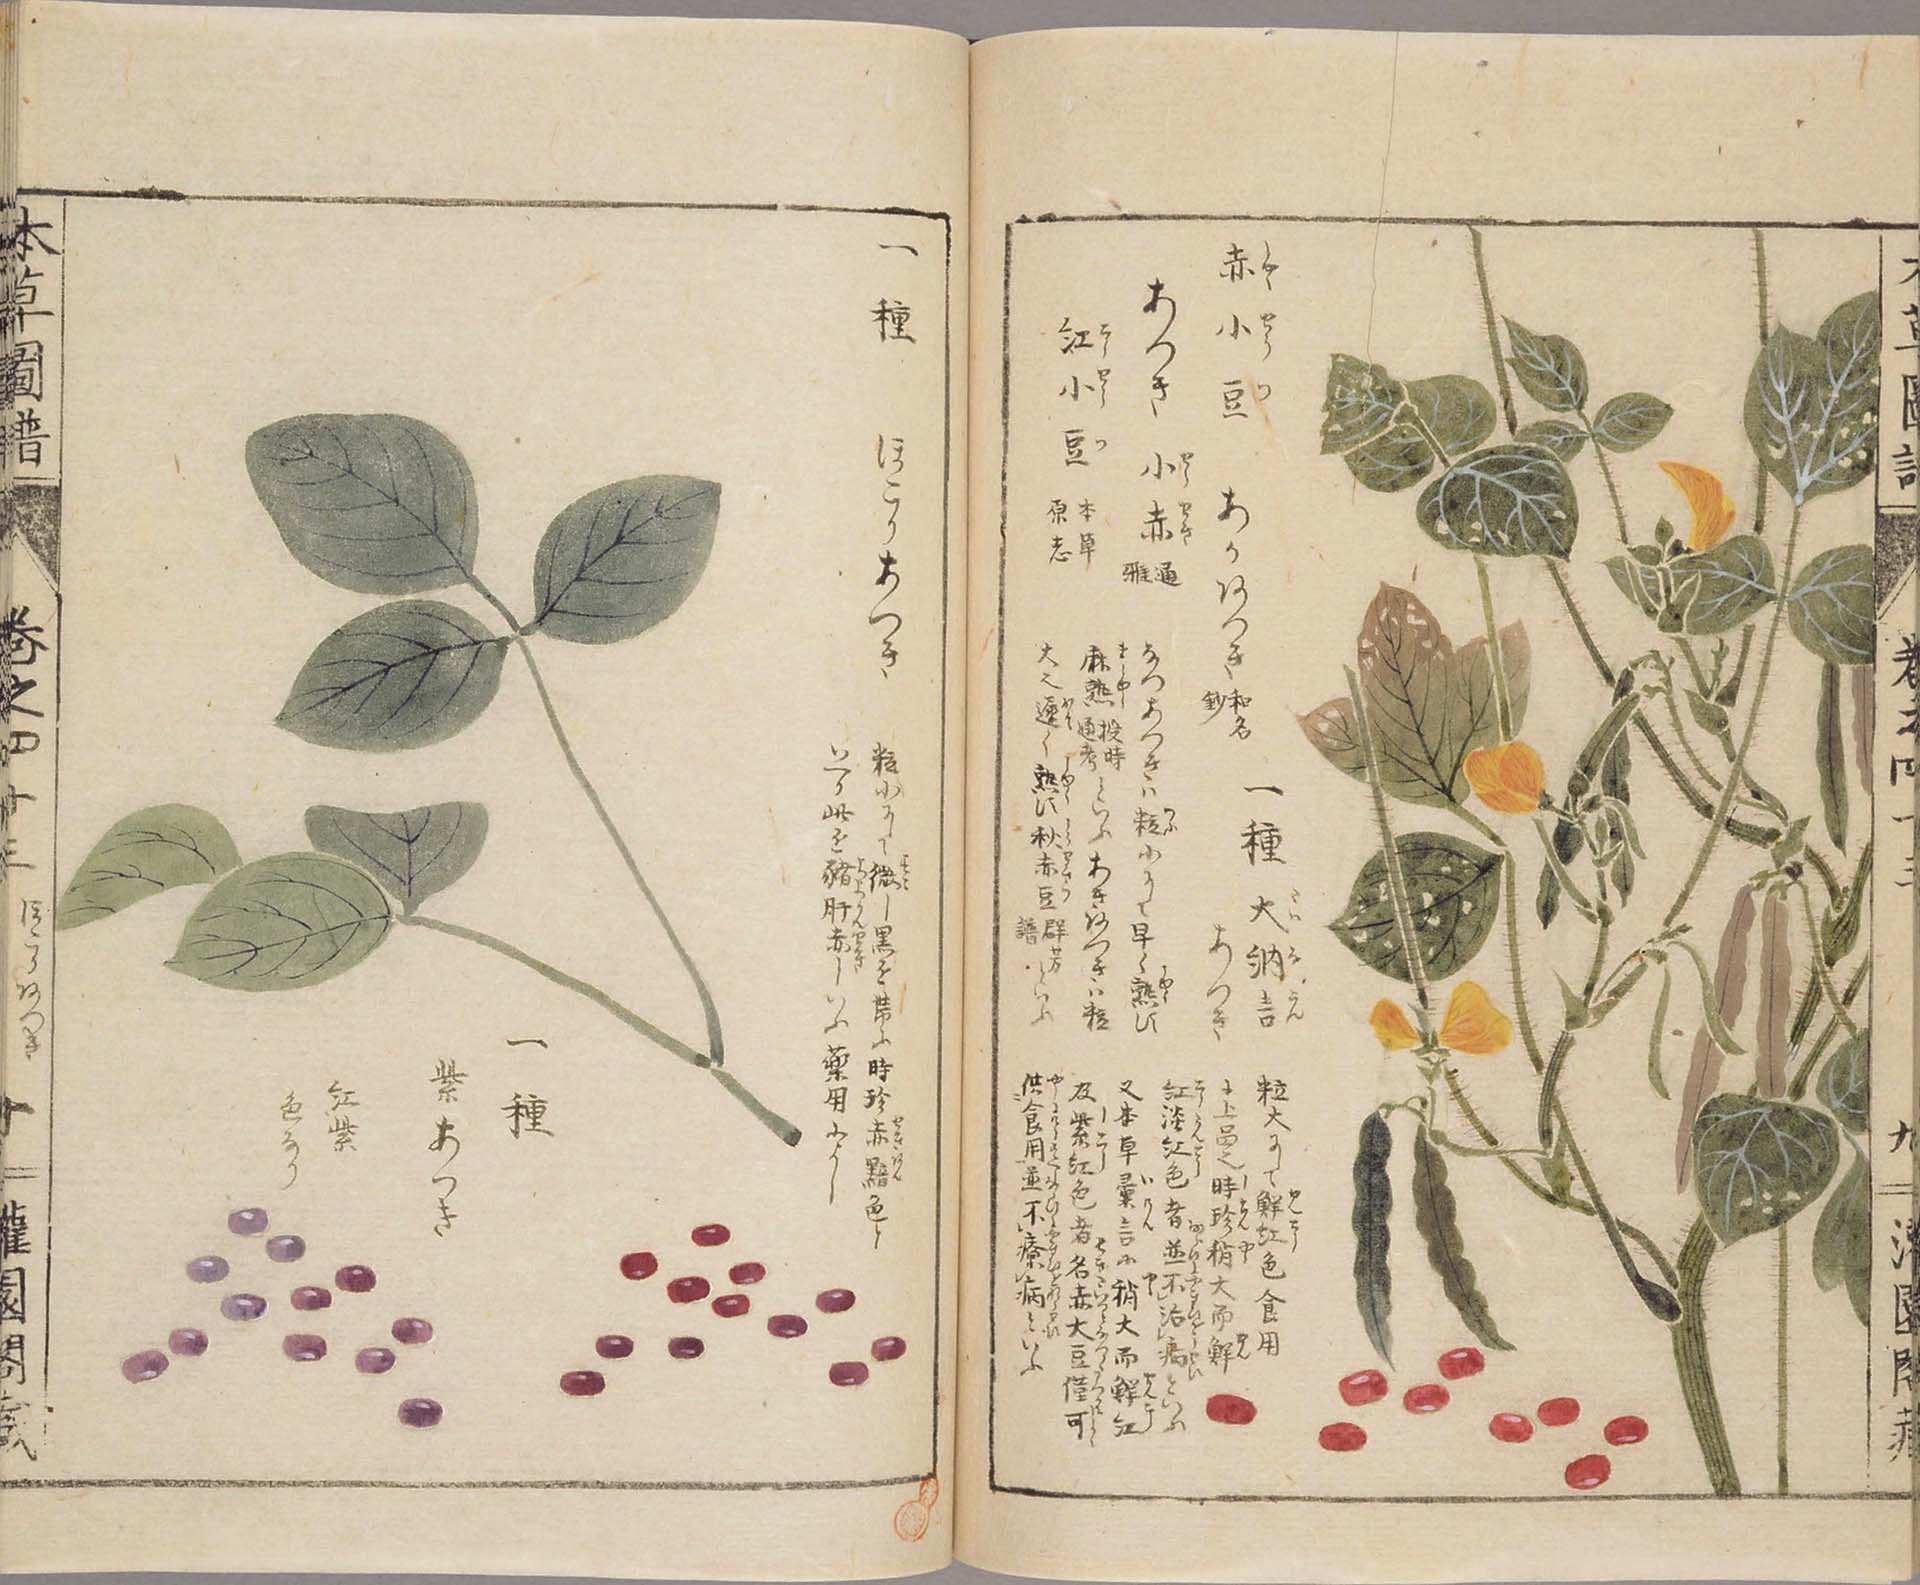 本草圖譜
卷之四十三
九
灌園閣藏
赤小豆
あかあつき
和名
鈔
あつき
小赤
通
雅
紅小豆
本草
原志
なつあつきハ粒小にて早く熟ス
麻熟
授時
通考
といふあきあつきハ粒
大に遲く熟ス秋赤豆
群芳
譜
といふ
一種
大納言
あつき
粒大にて鮮紅色食用
に上品也時珍稍大而鮮
紅淡紅色者並不治病といふ
又本草彙言に稍大而鮮紅
及紫紅色者名赤大豆僅可
供食用並不療病といふ
一種
ほこりあつき
粒小にて微し黒を帯ふ時珍赤黯色と
いふ此を豬肝赤といふ藥用によし
一種
紫あつき
紅紫
色なり
本草圖譜
卷之四十三
ほこりあつき
十
灌園閣藏